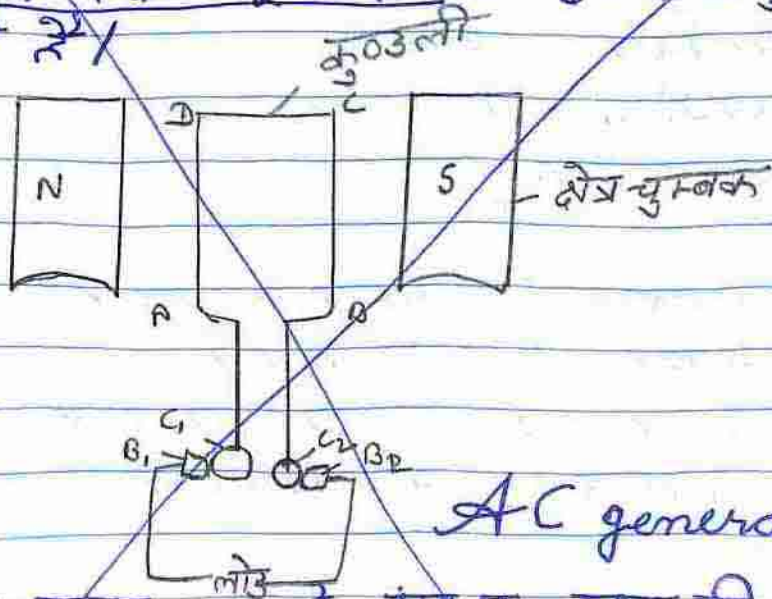 कुण्डली
D C
N S
क्षेत्र चुम्बक
A B
C₁ C₂
B₁ B₂
AC genera
लोड